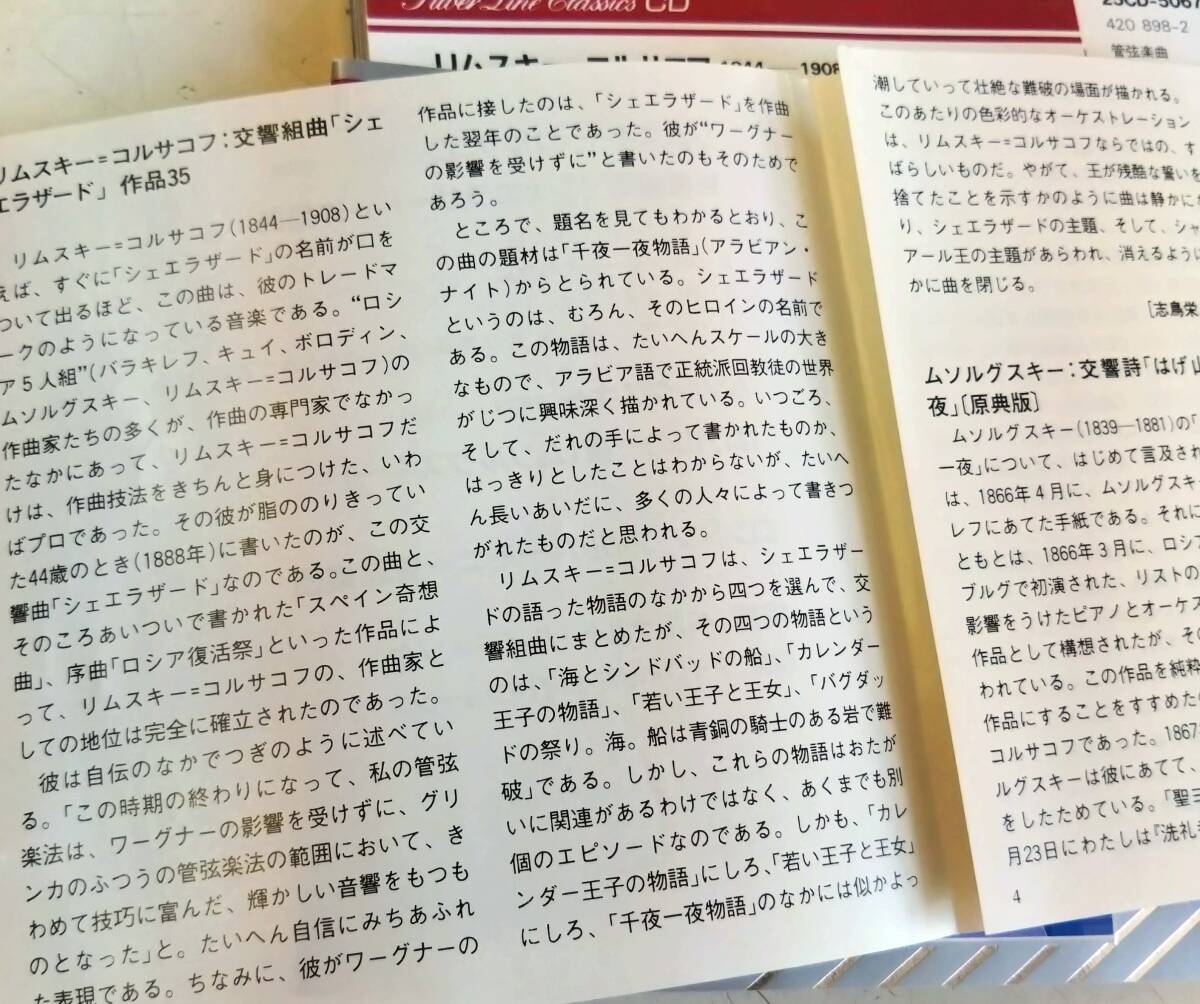 Silver Line Classics CD
420 898-2
管弦楽曲
リムスキー=コルサコフ 1844——1908
リムスキー=コルサコフ:交響組曲「シェ
エラザード」 作品35
リムスキー=コルサコフ(1844—1908)とい
えば、すぐに「シェエラザード」の名前が口を
ついて出るほど、この曲は、彼のトレードマ
ークのようになっている音楽である。“ロシ
ア5人組”(バラキレフ、キュイ、ボロディン、
ムソルグスキー、リムスキー=コルサコフ)の
作曲家たちの多くが、作曲の専門家でなかっ
たなかにあって、リムスキー=コルサコフだ
けは、作曲技法をきちんと身につけた、いわ
ばプロであった。その彼が脂ののりきってい
た44歳のとき(1888年)に書いたのが、この交
響曲「シェエラザード」なのである。この曲と、
そのころあいついで書かれた「スペイン奇想
曲」、序曲「ロシア復活祭」といった作品によ
って、リムスキー=コルサコフの、作曲家と
しての地位は完全に確立されたのであった。
彼は自伝のなかでつぎのように述べてい
る。「この時期の終わりになって、私の管弦
楽法は、ワーグナーの影響を受けずに、グリ
ンカのふつうの管弦楽法の範囲において、き
わめて技巧に富んだ、輝かしい音響をもつも
のとなった」と。たいへん自信にみちあふれ
た表現である。ちなみに、彼がワーグナーの
作品に接したのは、「シェエラザード」を作曲
した翌年のことであった。彼が“ワーグナー
の影響を受けずに”と書いたのもそのためで
あろう。
ところで、題名を見てもわかるとおり、こ
の曲の題材は「千夜一夜物語」(アラビアン・
ナイト)からとられている。シェエラザード
というのは、むろん、そのヒロインの名前で
ある。この物語は、たいへんスケールの大き
なもので、アラビア語で正統派回教徒の世界
がじつに興味深く描かれている。いつごろ、
そして、だれの手によって書かれたものか、
はっきりとしたことはわからないが、たいへ
ん長いあいだに、多くの人々によって書きつ
がれたものだと思われる。
リムスキー=コルサコフは、シェエラザー
ドの語った物語のなかから四つを選んで、交
響組曲にまとめたが、その四つの物語という
のは、「海とシンドバッドの船」、「カレンダー
王子の物語」、「若い王子と王女」、「バグダッ
ドの祭り。海。船は青銅の騎士のある岩で難
破」である。しかし、これらの物語はおたが
いに関連があるわけではなく、あくまでも別
個のエピソードなのである。しかも、「カレ
ンダー王子の物語」にしろ、「若い王子と王女」
にしろ、「千夜一夜物語」のなかには似かよっ
潮していって壮絶な難破の場面が描かれる。
このあたりの色彩的なオーケストレーション
は、リムスキー=コルサコフならではの、す
ばらしいものだ。やがて、王が残酷な誓いを
捨てたことを示すかのように曲は静かに
り、シェエラザードの主題、そして、シャ
アール王の主題があらわれ、消えるように
かに曲を閉じる。
[志鳥栄
ムソルグスキー:交響詩「はげ山
夜」〔原典版〕
ムソルグスキー(1839—1881)の「
一夜」について、はじめて言及され
は、1866年4月に、ムソルグスキー
レフにあてた手紙である。それに
ともとは、1866年3月に、ロシア
ブルグで初演された、リストの
影響をうけたピアノとオーケス
作品として構想されたが、その
われている。この作品を純粋
作品にすることをすすめた
コルサコフであった。1867
ルグスキーは彼にあてて、
をしたためている。「聖ヨ
月23日にわたしは『洗礼
4